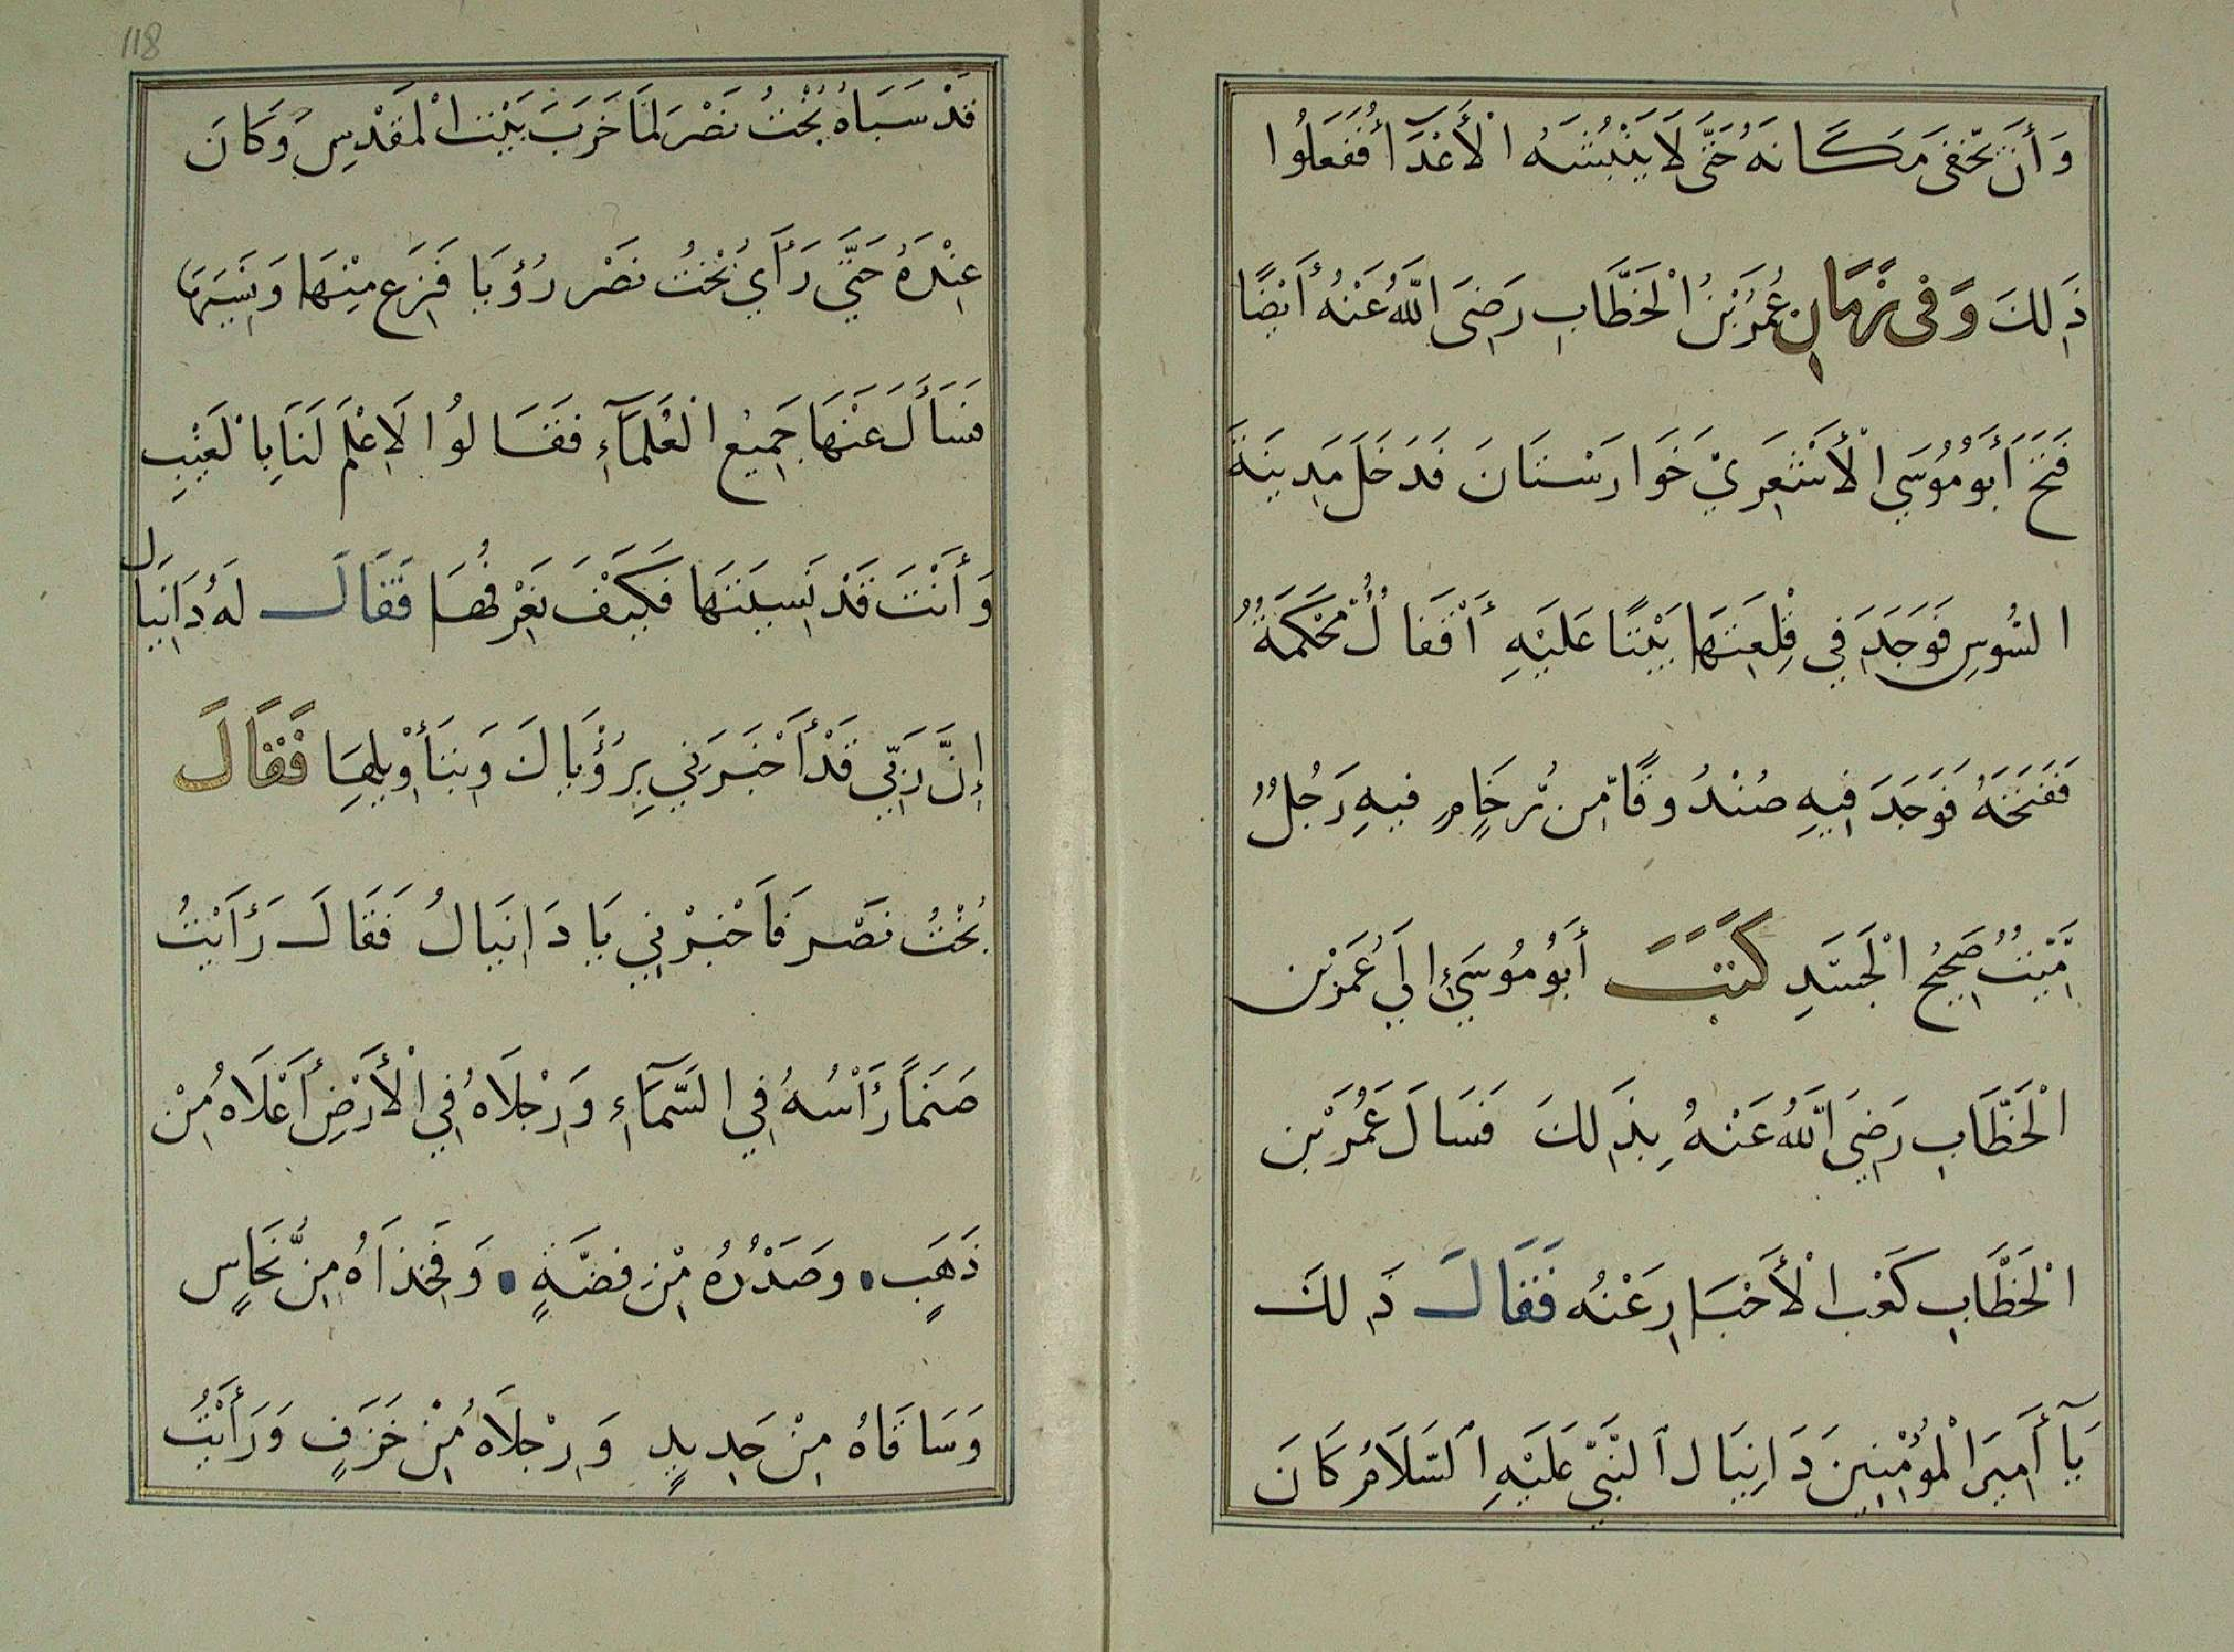 وَأَنْ يَخْفَى مَكَانَهُ حَتَّى لَا يَنْبُشَهُ الْأَعْدَآءُ فَفَعَلُوا
ذَلِكَ وَفِى زَمَانِ عُمَرُ بْنُ الْخَطَّابِ رَضِىَ اللَّهُ عَنْهُ أَيْضًا
فَتَحَ أَبُو مُوُسَي الْأَشْعَرِيْ خَوَارَسْتَانَ فَدَخَلَ مَدِينَةَ
السُوسِ فَوَجَدَ فِي قِلِعَتِهَا بَيْتًا عَلَيْهِ أَقْفَالٌ مُحْكَمَةٌ
فَفَتَحَهُ فَوَجَدَ فِيهِ صُنْدُوقًا مِّن رُّخَامٍ فِيهِ رَجُلٌ
مَّيِّتٌ صَحِيحُ الْجَسَدِ كَتَبَ أَبُو مُوُسَيَ إِلَي عُمَرَ بْن
الْخَطَّابِ رَضِيَ اللَّهُ عَنْهُ بِذَلِكَ فَسَالَ عُمَرُ بْن
الْخَطَّابِ كَعْب الْأَحْبَارِ عَنْهُ فَقَالَ ذَلِكَ
يَآ أَمِيرَ الْمُؤْمِنِينَ دَانِيَال النَّبِيْ عَلَيْهِ السَّلَامُ كَانَ
118
قَدْ سَبَاهُ بُخْتُ نَصْرَ لمَّا خَرَبَ بَيْتَ الْمَقْدِسِ وَكَانَ
عِنْدَهُ حَتَّي رَأَي بُخْتُ نَصْر رُؤْيَا فَزِعَ مِنْهَا وَنَسِيَهَا
فَسَأَلَ عَنْهَا جَمِيعُ الْعُلَمَآءِ فَقَالُوا لَا عِلْمَ لَنَا بِالْغَيْبِ
وَأَنْتَ قَدْ نَسِيتَهَا فَكَيْفَ نَعْرِفُهَا فَقَالَ لَهُ دَانِيَال
إِنَّ رَبِّي قَدْ أَخْبَرَنِي بِرُؤْيَاكَ وَبِتَأْوِيلِهَا فَقَالَ
بُخْتُ نَصْر فَاَخْبِرْنِي يَا دَانِيَالُ فَقَالَ رَأَيْتُ
صَنَمًا رَأْسُهُ فِي السَّمَآءِ وَرِجْلَاهُ فِي الْأَرْضِ أَعْلَاهُ مِنْ
ذَهَبٍ وَصَدْرُهُ مِنْ فضَّةٍ وَفَخِذَاهُ مِنْ نُّحَاسٍ
وَسَاقَاهُ مِنْ حَدِيدٍ وَرِجْلَاهُ مِنْ خَزَفٍ وَرَأَيْتُ